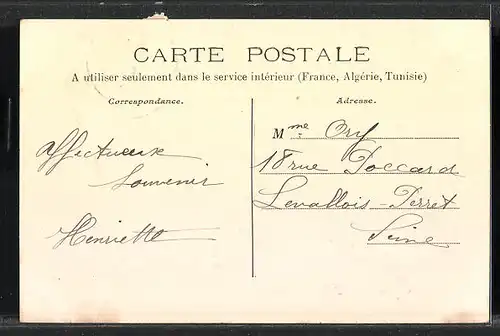 CARTE POSTALE
A utiliser seulement dans le service intérieur (France, Algérie, Tunisie)
Correspondance.
Affectueux
Souvenir
Henriette
Adresse.
Mme Ory
18 rue Poccard
Levallois-Perret
Seine